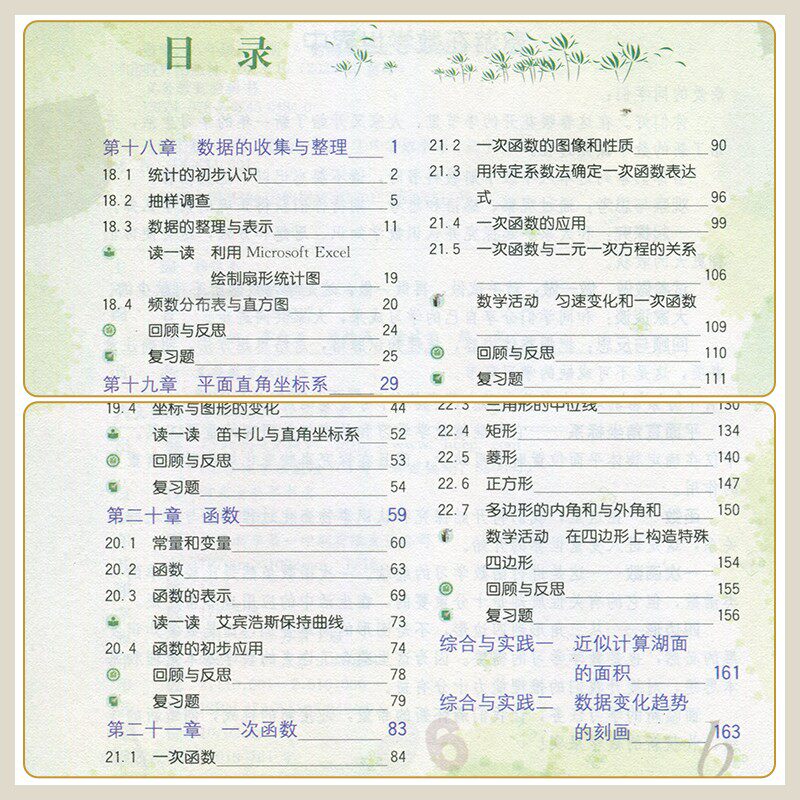 目 录
第十八章 数据的收集与整理 1
18.1 统计的初步认识 2
18.2 抽样调查 5
18.3 数据的整理与表示 11
读一读 利用 Microsoft Excel
绘制扇形统计图 19
18.4 频数分布表与直方图 20
回顾与反思 24
复习题 25
第十九章 平面直角坐标系 29
21.2 一次函数的图像和性质 90
21.3 用待定系数法确定一次函数表达
式 96
21.4 一次函数的应用 99
21.5 一次函数与二元一次方程的关系
106
数学活动 匀速变化和一次函数
109
回顾与反思 110
复习题 111
19.4 坐标与图形的变化 44
读一读 笛卡儿与直角坐标系 52
回顾与反思 53
复习题 54
第二十章 函数 59
20.1 常量和变量 60
20.2 函数 63
20.3 函数的表示 69
读一读 艾宾浩斯保持曲线 73
20.4 函数的初步应用 74
回顾与反思 78
复习题 79
第二十一章 一次函数 83
21.1 一次函数 84
22.3 三角形的中位线 130
22.4 矩形 134
22.5 菱形 140
22.6 正方形 147
22.7 多边形的内角和与外角和 150
数学活动 在四边形上构造特殊
四边形 154
回顾与反思 155
复习题 156
综合与实践一 近似计算湖面
的面积 161
综合与实践二 数据变化趋势
的刻画 163